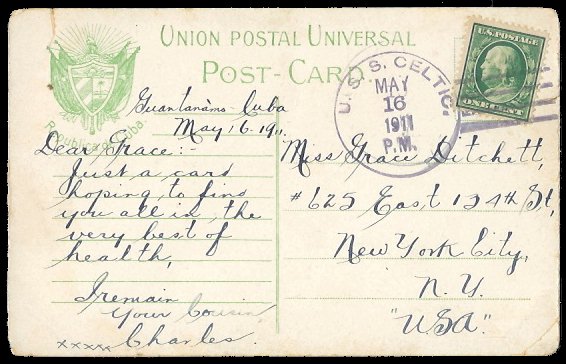 UNION POSTAL UNIVERSAL
POST-CARD
República de Cuba
U.S.S. CELTIC.
MAY
16
1911
P.M.
U.S. POSTAGE
ONE CENT
Guantanàmo Cuba
May, 16, 1911.
Dear Grace:-
Just a card
hoping to find
you all in, the
very best of
health,
I remain
Your Cousin
Charles.
xxxxx
Miss Grace Ditchett,
#625 East 134th St,
New York City,
N. Y.
"USA"